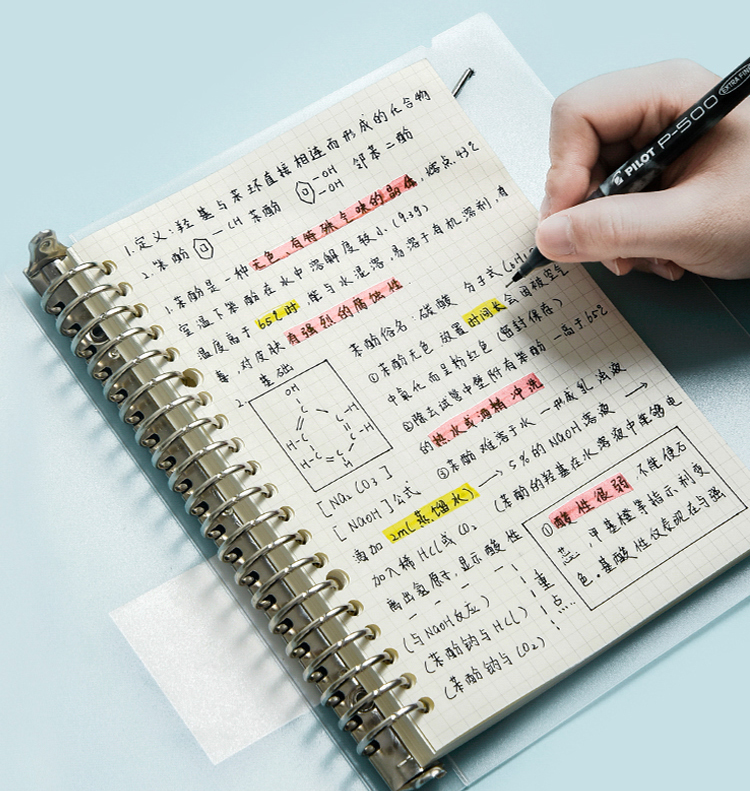 1.定义:羟基与苯环直接相连而形成的化合物
2.苯酚 —CH 苯酚 —OH —OH 邻苯二酚
1.苯酚是一种无色,有特殊气味的晶体,熔点43℃
室温下苯酚在水中溶解度较小(9.3g)
温度高于65℃时 能与水混溶,易溶于有机溶剂,有
毒,对皮肤有强烈的腐蚀性
2. 基础
OH
C
C—H
H—C
C—H
H—C
C
H
苯酚俗名:碳酸 分子式(C6H
①苯酚无色 放置时间长会因被空气
中氧化而呈粉红色(密封保存)
②除去试管中整附有苯酚 —高于65℃
的热水或酒精冲洗
③苯酚难溶于水 —形成乳浊液
[Na2CO3]
[NaOH]公式 → 5%的NaOH溶液 →
滴加2ml(蒸馏水) (苯酚的羟基在水溶液中能够电
加入稀HCl或CO2
离出氢原子,显示酸性
(与NaOH反应)
(苯酚钠与HCl)
(苯酚钠与CO2)
重
点....
①酸性很弱 不能使石
蕊,甲基橙等指示剂变
色.基酸性仅表现在与强
PILOT P-500 EXTRA FINE